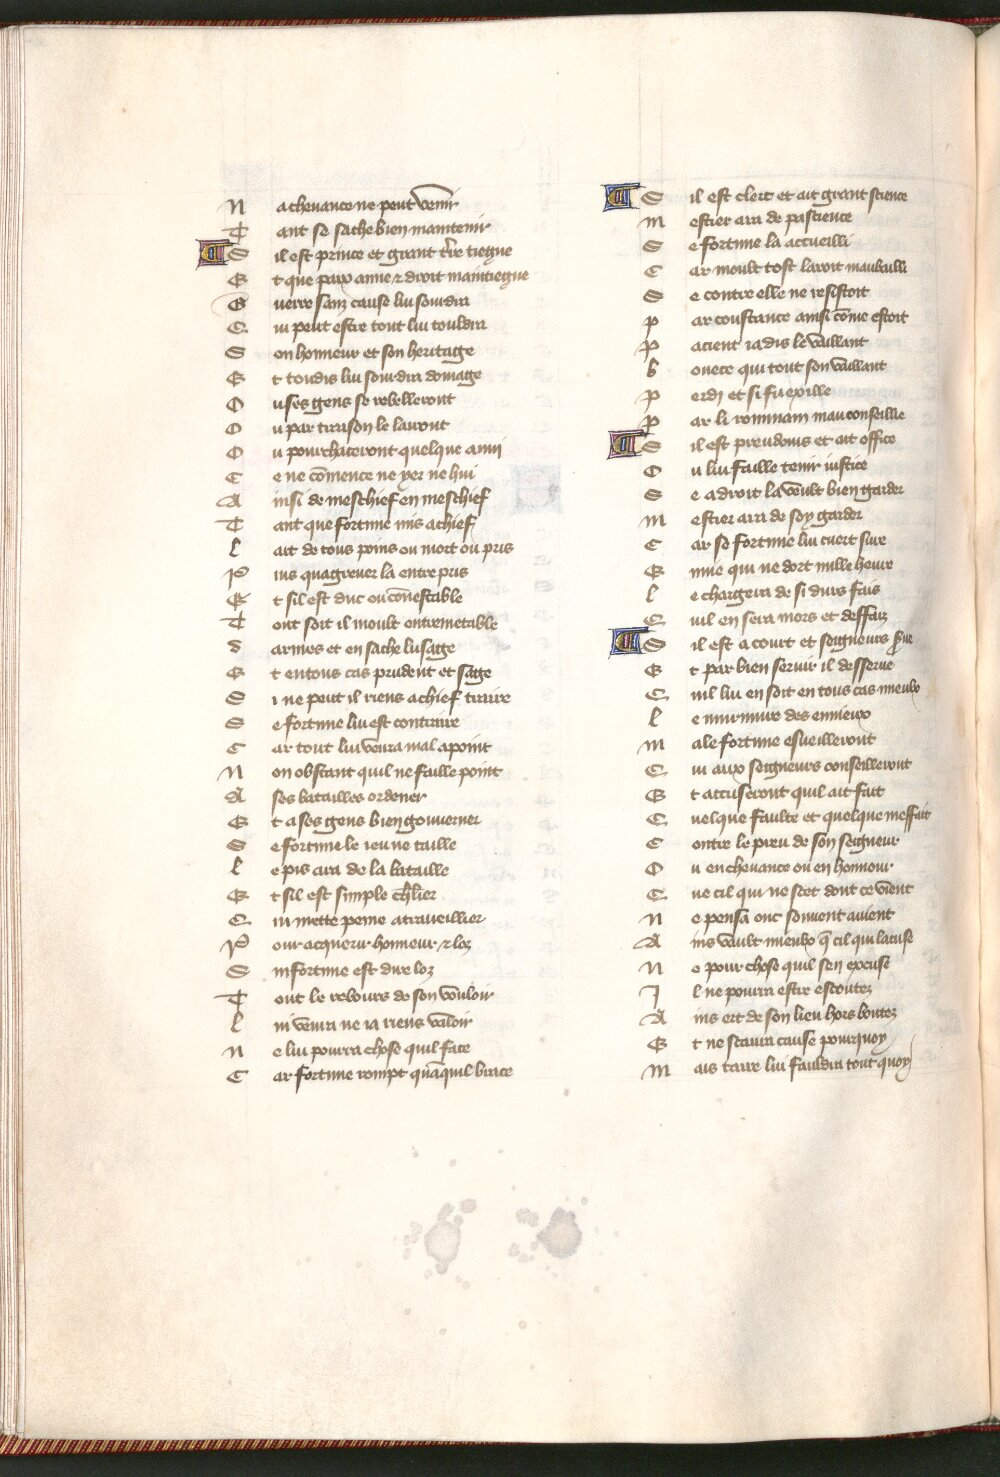 N a chevance ne peut venir
T ant se sache bien maintenir
S il est prince et grant tr̄re tiegne
E t que paix anie ⁊ droit maintiegne
G uerre sanz cause lui sourdra
C ui peut estre tout lui touldra
S on honneur et son heritage
E t tousdis lui sourdra domage
O u ses gens se rebelleront
O u par traison le lairont
O u pourchaceront quelque anui
C e ne cōmence ne yer ne hui
A insi de meschief en meschief
T ant que fortune mis a chief
L ait de tous poins ou mort ou pris
P uis quagrever la entrepris
E t sil est duc ou cōnestable
T out soit il moult entremetable
D armes et en sache lusage
E t en tous cas prudent et sage
S i ne peut il riens a chief traire
S e fortune lui est contraire
C ar tout lui venra mal a point
N on obstant quil ne faille point
A ses batailles ordener
E t a ses gens bien gouverner
S e fortune le ieu ne taille
L e pis ara de la bataille
E t sil est simple ch̄lier
C ui mette peine a traveillier
P our acquerir honneur ⁊ loz
S infortune est dure loz
T out le rebours de son vouloir
L ui venra ne ia riens valoir
N e lui pourra chose quil face
C ar fortune rompt quāquil brace
S il est clerc et ait grant science
M estier ara de pascience
S e fortune la accueilli
C ar moult tost laroit maubailli
S e contre elle ne resistoit
P ar constance ainsi cōme estoit
P acient iadis le vaillant
B oece qui tout son vaillant
P erdi et si fu exille
P ar li rommain mau conseille
S il est preudoms et ait office
O u lui faille tenir iustice
S e a droit la veult bien garder
M estier ara de soy garder
C ar se fortune lui cuert sure
E nuie qui ne dort nulle heure
L e chargera de si durs fais
C uil en sera mors et deffaiz
S il est a court et seigneurs s̄rue
E t par bien servir il desserve
C uil lui en soit en tous cas mieulx
L e murmure des ennieux
M ale fortune esveilleront
C ui aux seigneurs conseilleront
E t accuseront quil ait fait
C uelque faulte et quelque meffait
C ontre le preu de son seigneur
O u en chevance ou en honnour
C ue cil qui ne scet dont ce vient
N e pensa onc souvent avient
A ins vault mieulx q̄ cil qui lacuse
N e pour chose quil sen excuse
I l ne pourra estre escoutez
A ins ert de son lieu hors boutez
E t ne scaura cause pourquoy
M ais taire lui fauldra tout quoy